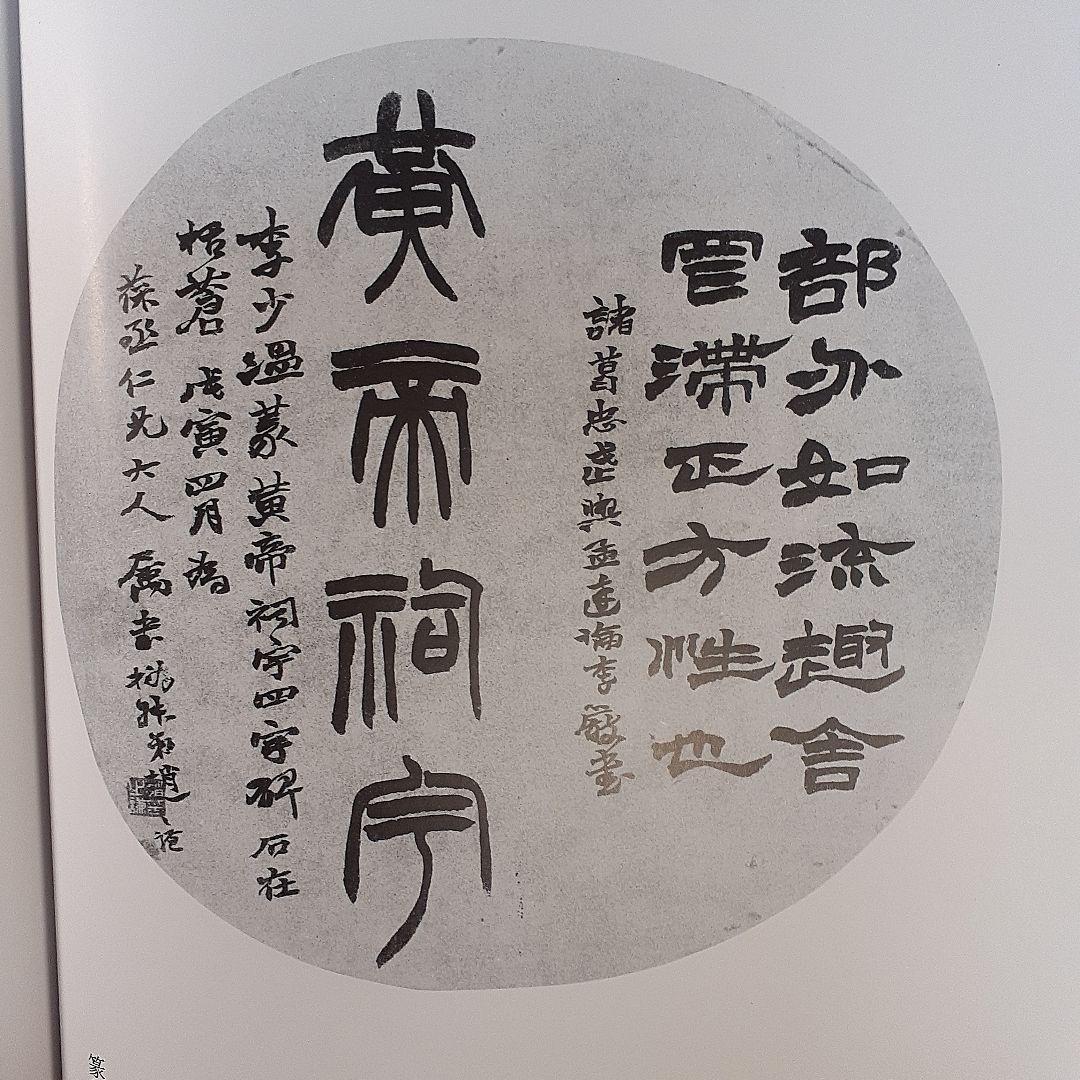 部分如流趣舍
罔滯正方性也
諸葛忠武與孟達論李嚴書
黃帝祠宇
李少溫篆黃帝祠宇四字碑石在
栝蒼 戊寅四月為
葆丞仁兄大人 屬書撝叔弟趙之謙
篆